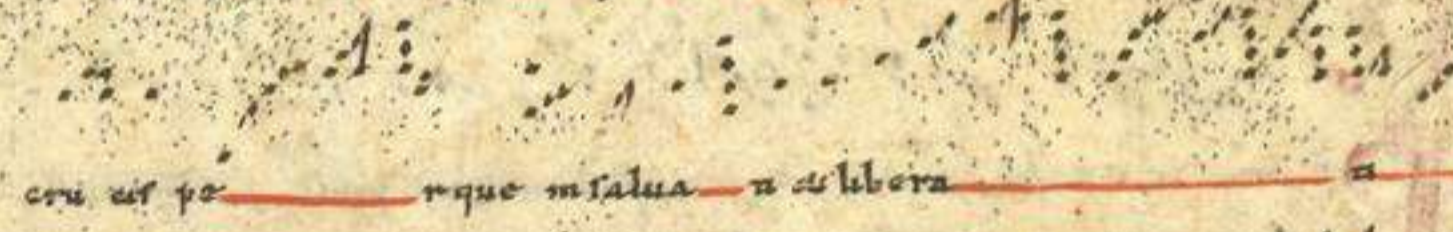 cru cis pe rque m salua ti &  libera ti